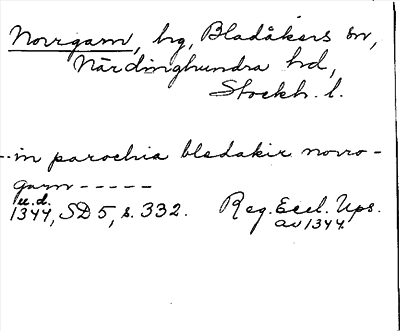 Norrgarn, by, Bladåkers sn,
Närdinghundra hd,
Stockh. l.
--in parochia bledakir norro-
garn -----
u.d.
1344, SD 5, s. 332. Reg. Eccl. Ups.
av 1344.